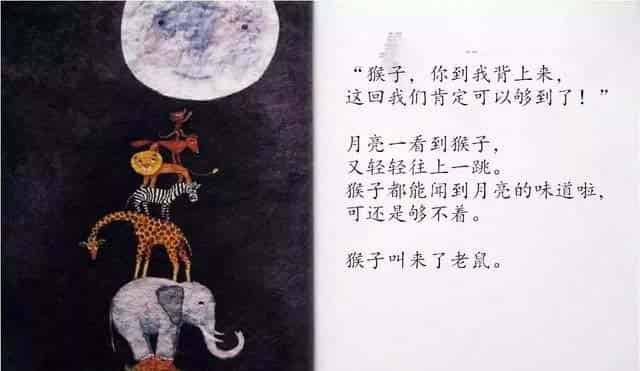 “猴子，你到我背上来，
这回我们肯定可以够到了！”
月亮一看到猴子，
又轻轻往上一跳。
猴子都能闻到月亮的味道啦，
可还是够不着。
猴子叫来了老鼠。